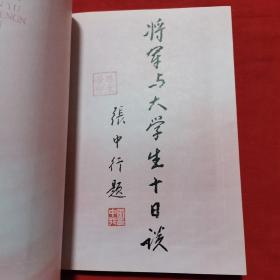 将军与大学生十日谈
張中行题